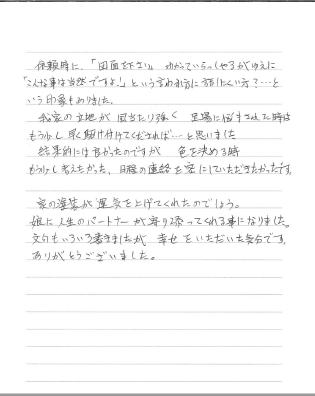 依頼時に、「図面を下さい」 わかっていらっしゃるがゆえに
「こんな事は当然ですよ!」という言われ方に話しにくい方?…と
いう印象もありました。
我家の立地が 風当たり強く 足場に悩まされた時は
もう少し早く駆け付けてくだされば…と思いました
結果的には良かったのですが 色を決める時
もう少し考えたかった、日程の連絡を密にしていただきたかったです。
家の塗装が運気を上げてくれたのでしょう。
娘に人生のパートナーが寄り添ってくれる事になりました。
文句もいろいろ書きましたが 幸せをいただいた気分です。
ありがとうございました。